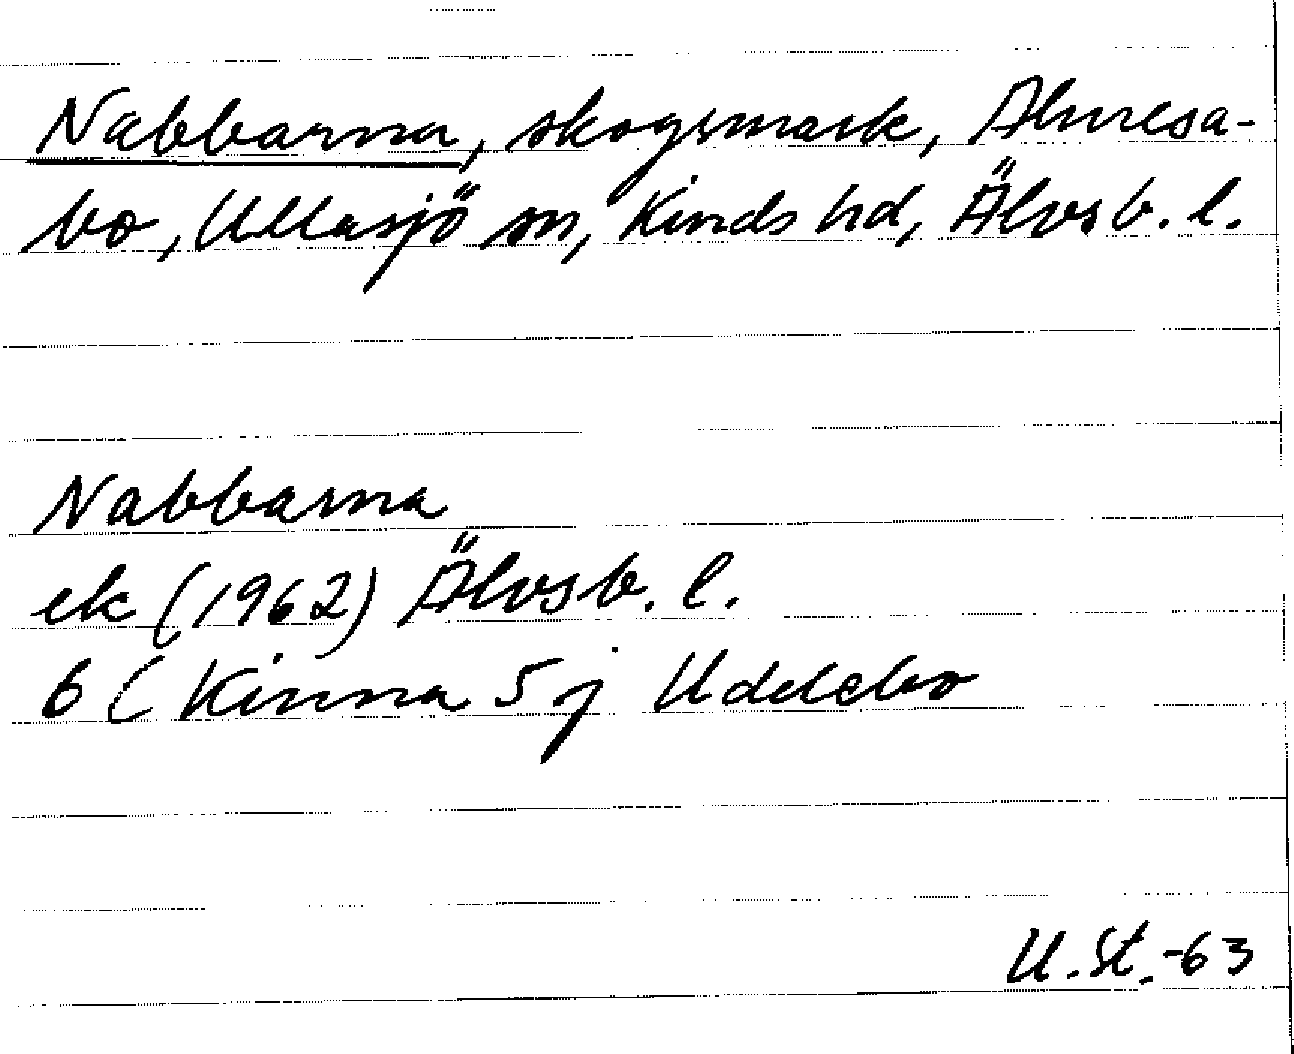 Nabbarna, skogsmark, Almesa-
bo, Ullasjö sn, Kinds hd, Älvsb. l.
Nabbarna
ek (1962) Älvsb. l.
6 ( Kinna 5 j Uddebo
U. St. -63